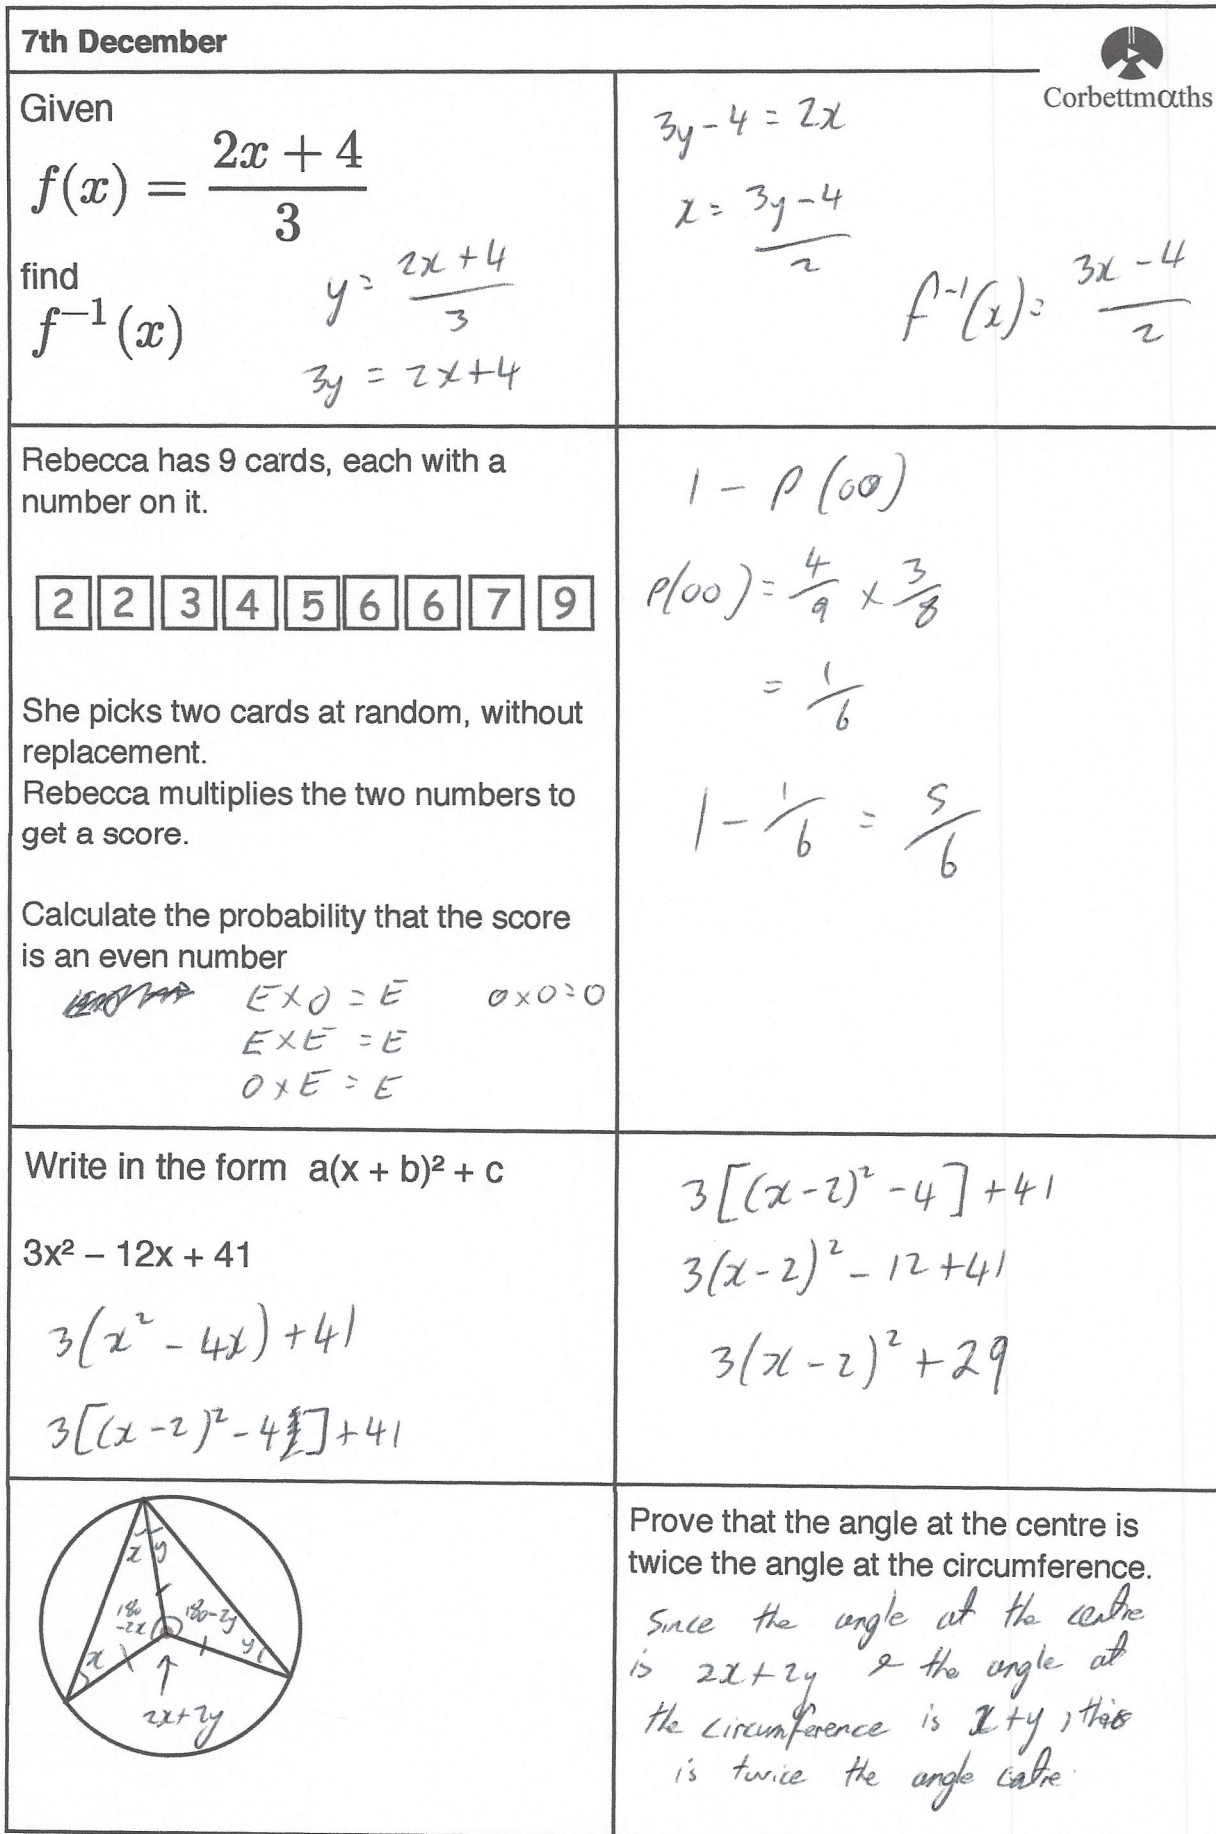 7th December
Corbettmαths
Given
f(x) = (2x + 4)/3
find
f⁻¹(x)
y = (2x + 4)/3
3y = 2x + 4
3y - 4 = 2x
x = (3y - 4)/2
f⁻¹(x) = (3x - 4)/2
Rebecca has 9 cards, each with a
number on it.
2 2 3 4 5 6 6 7 9
She picks two cards at random, without
replacement.
Rebecca multiplies the two numbers to
get a score.
Calculate the probability that the score
is an even number
E × O = E O × O = O
E × E = E
O × E = E
1 - P(OO)
P(OO) = 4/9 × 3/8
= 1/6
1 - 1/6 = 5/6
Write in the form a(x + b)² + c
3x² – 12x + 41
3(x² - 4x) + 41
3[(x - 2)² - 4] + 41
3[(x - 2)² - 4] + 41
3(x - 2)² - 12 + 41
3(x - 2)² + 29
x y
180 - 2x 180 - 2y
x y
2x + 2y
Prove that the angle at the centre is
twice the angle at the circumference.
Since the angle at the centre
is 2x + 2y & the angle at
the circumference is x + y, this
is twice the angle